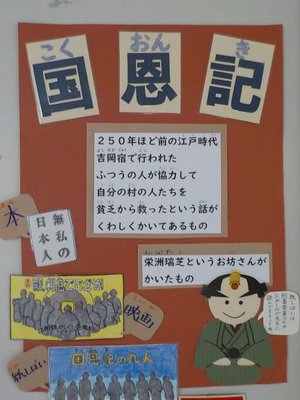 こく おん き
国恩記
250年ほど前の江戸時代
吉岡宿で行われた
ふつうの人が協力して
自分の村の人たちを
貧乏から救ったという話が
くわしくかいてあるもの
栄洲瑞芝というお坊さんが
かいたもの
本
無私の
日本人
映画
紙しばい
国恩記の九人